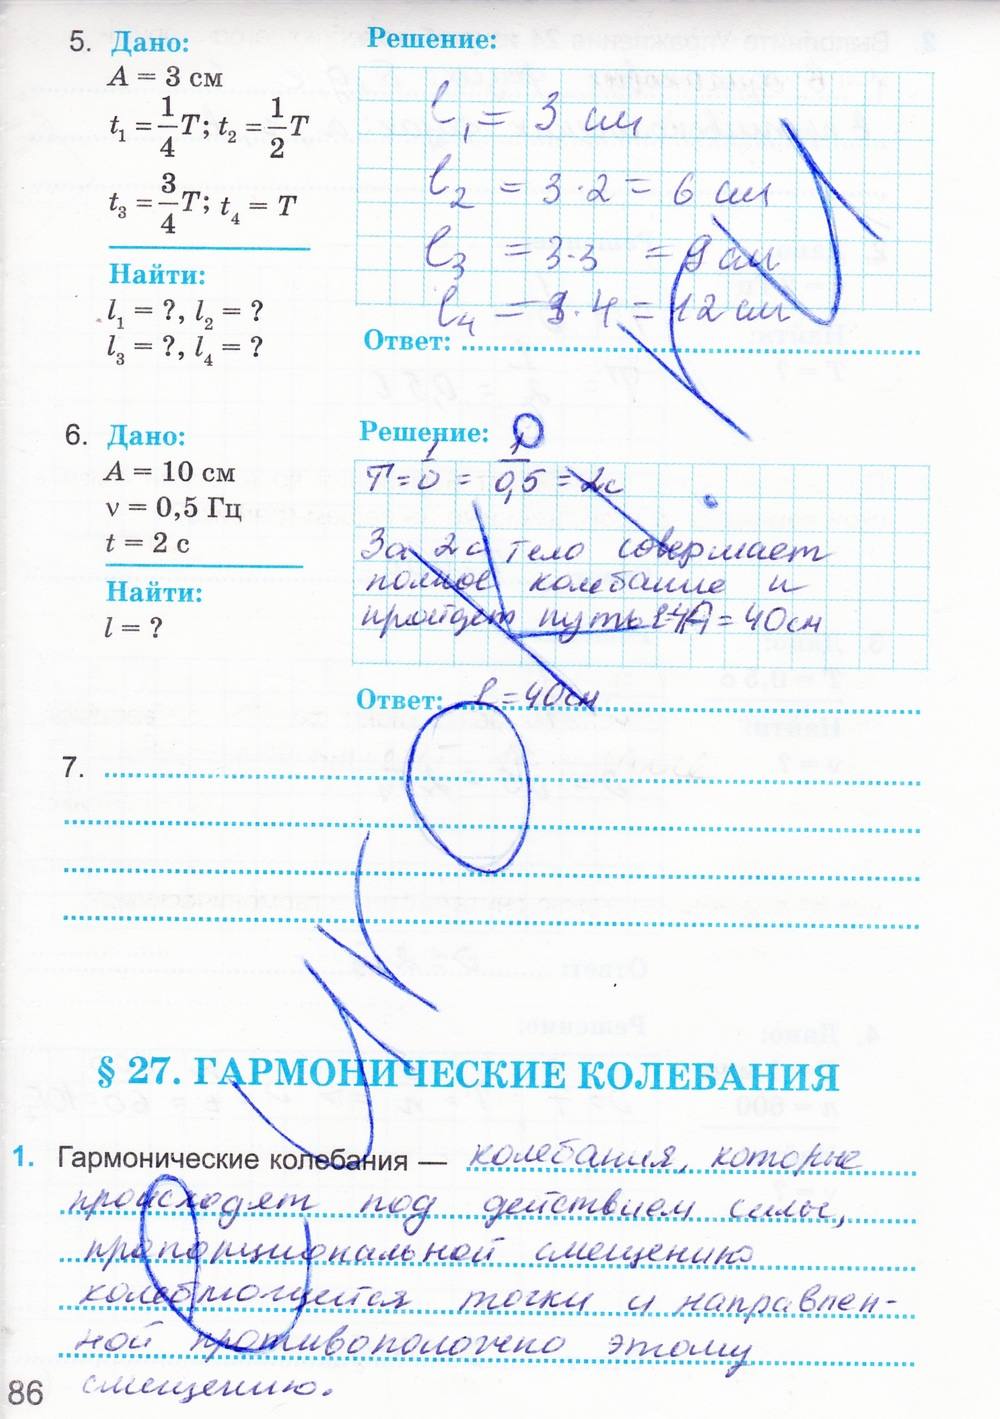 5. Дано:
A = 3 см
t₁ = 1/4 T; t₂ = 1/2 T
t₃ = 3/4 T; t₄ = T
Найти:
l₁ = ?, l₂ = ?
l₃ = ?, l₄ = ?
Решение:
l₁ = 3 см
l₂ = 3·2 = 6 см
l₃ = 3·3 = 9 см
l₄ = 3·4 = 12 см
Ответ:
6. Дано:
A = 10 см
ν = 0,5 Гц
t = 2 с
Найти:
l = ?
Решение:
T = 1/υ = 1/0,5 = 2с
За 2с тело совершает
полное колебание и
пройдет путь l=4A = 40см
Ответ: l = 40см
7.
§ 27. ГАРМОНИЧЕСКИЕ КОЛЕБАНИЯ
1. Гармонические колебания — колебания, которые
происходят под действием силы,
пропорциональной смещению
колеблющейся точки и направлен-
ной противоположно этому
смещению.
86